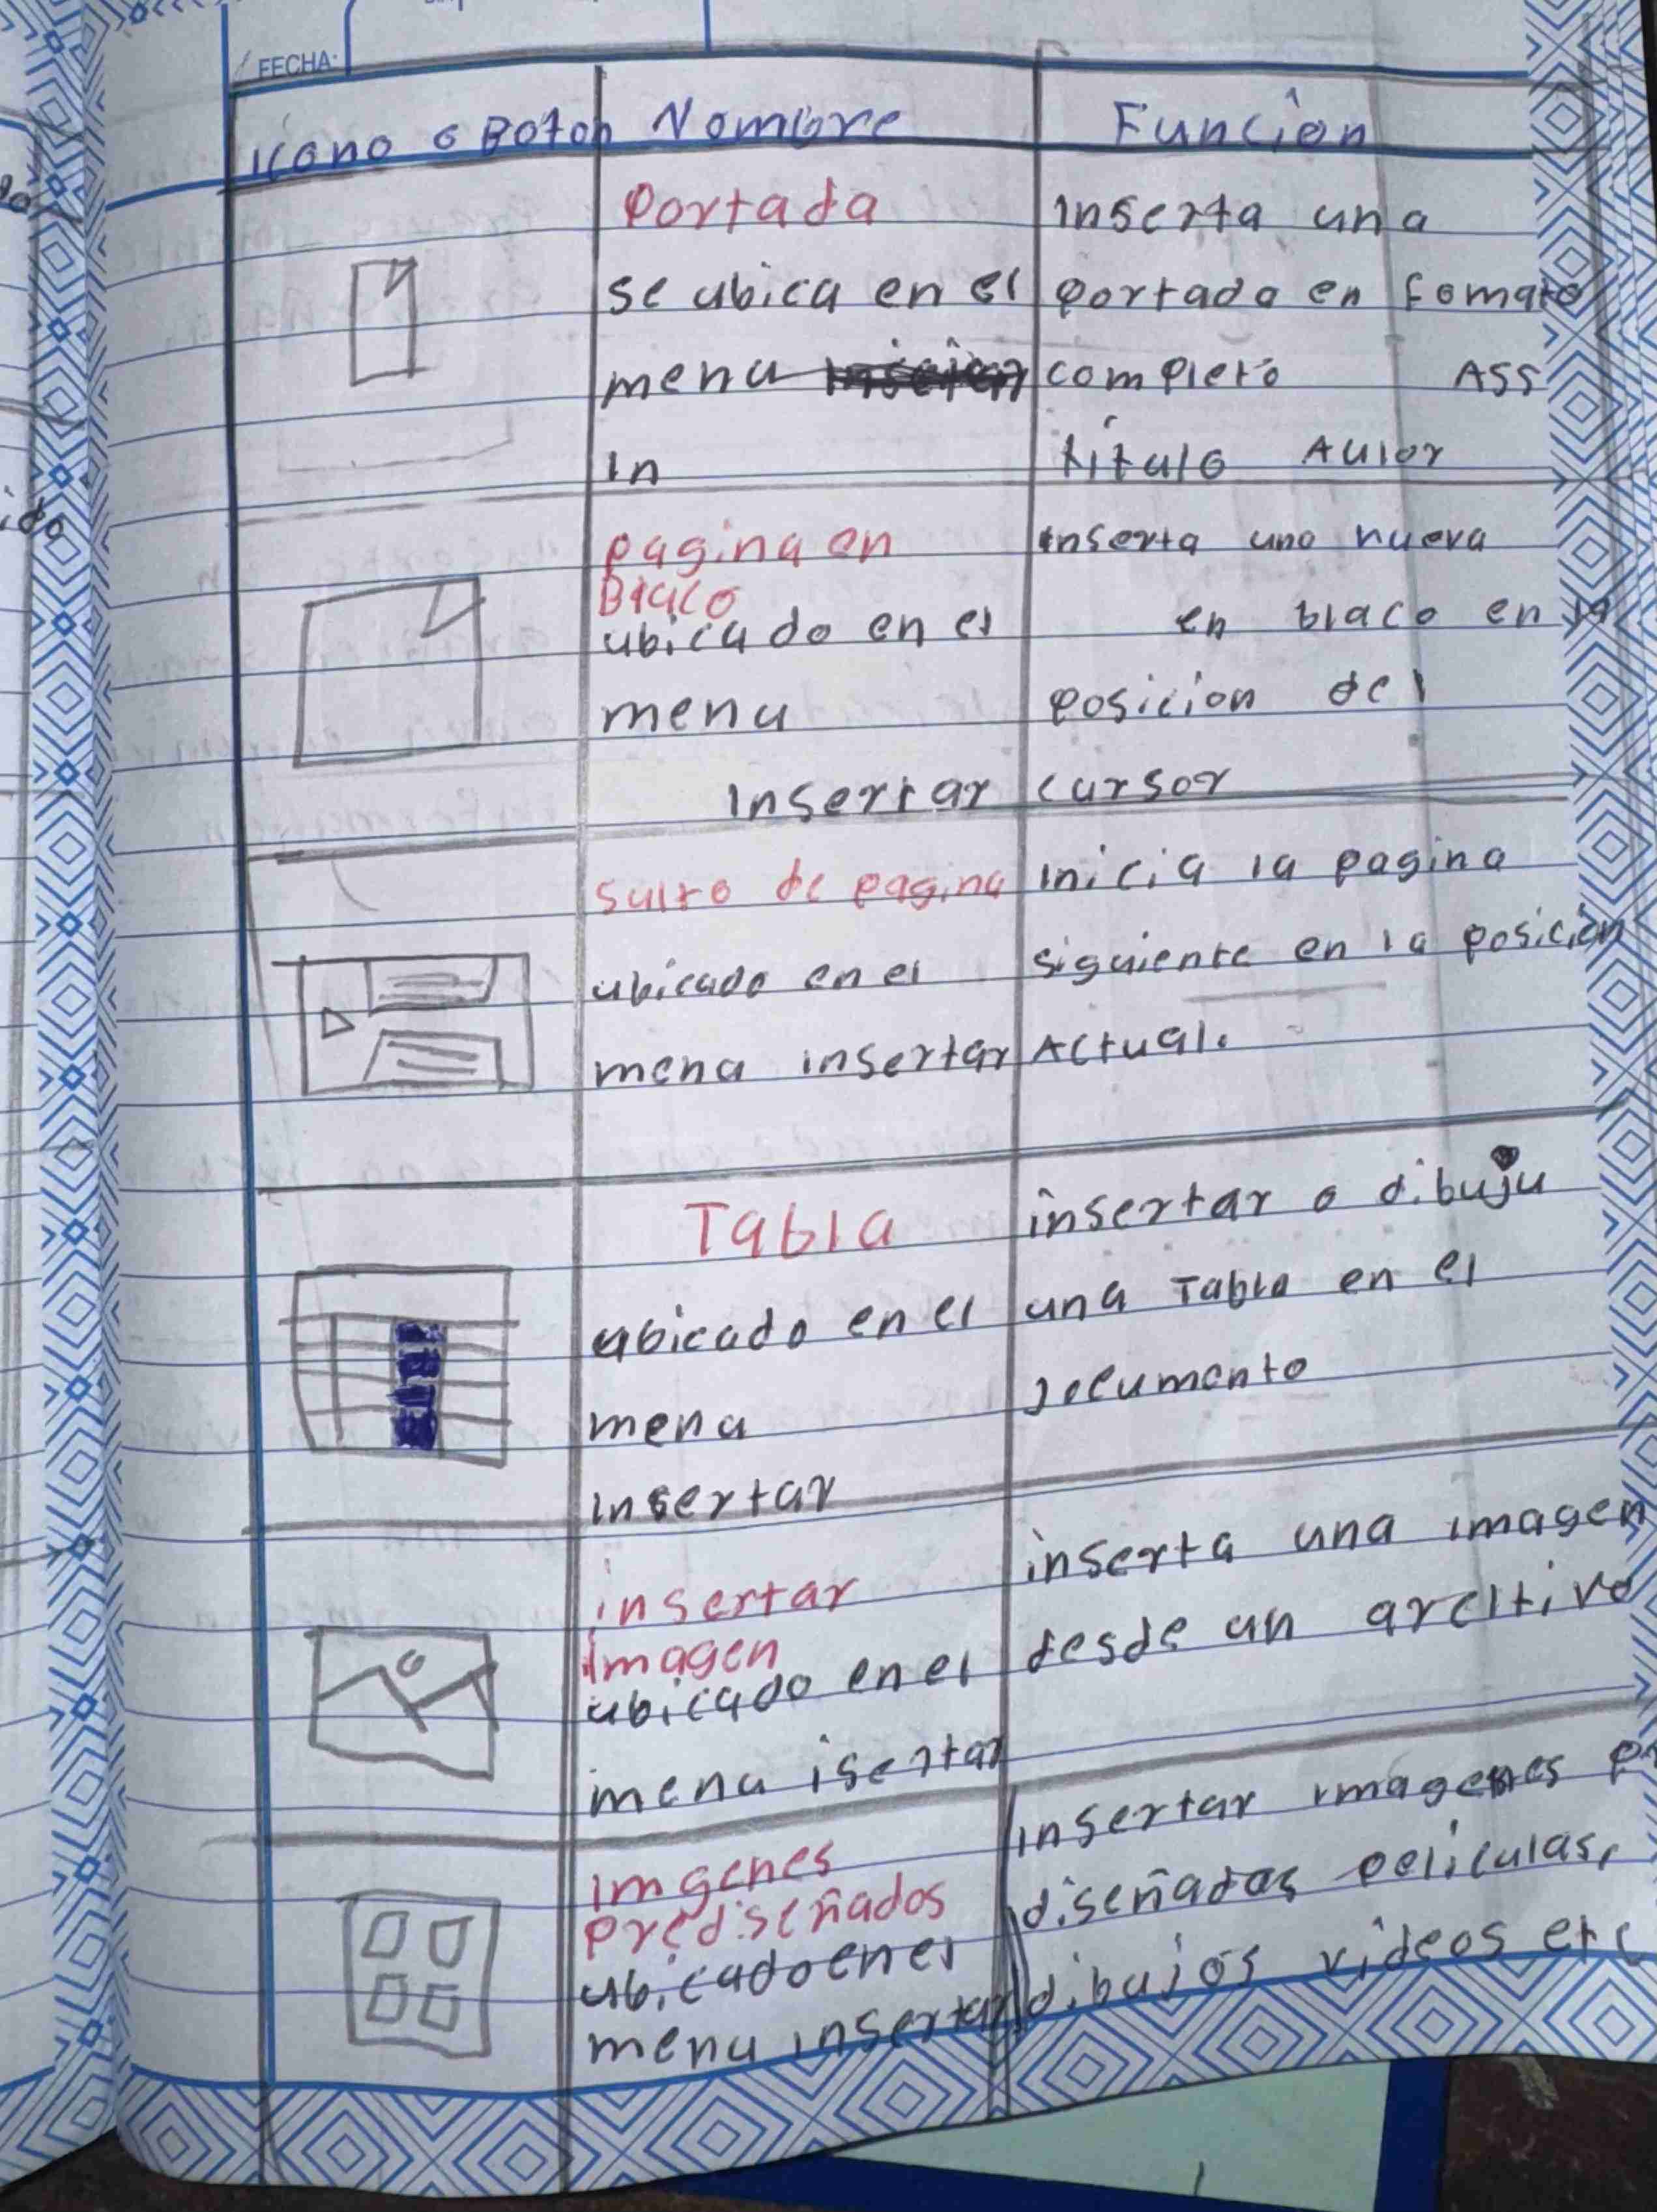 FECHA:
Icono o Boton Nombre Función
Portada
se ubica en el
menu
In
Inserta una
portada en fomato
completo Ass
titulo Autor
pagina en
Blaco
ubicado en el
menu
Insertar
inserta una nueva
en blaco en la
posicion del
cursor
Salto de pagina
ubicado en el
menu insertar
Inicia la pagina
siguiente en la posición
Actual.
Tabla
ubicado en el
menu
insertar
insertar o dibuju
una Tabla en el
documento
insertar
Imagen
ubicado en el
menu isertar
inserta una imagen
desde un
Imgenes
prediseñados
ubicado en el
menu insertar
Insertar imagenes
diseñadas peliculas,
dibujos videos etc